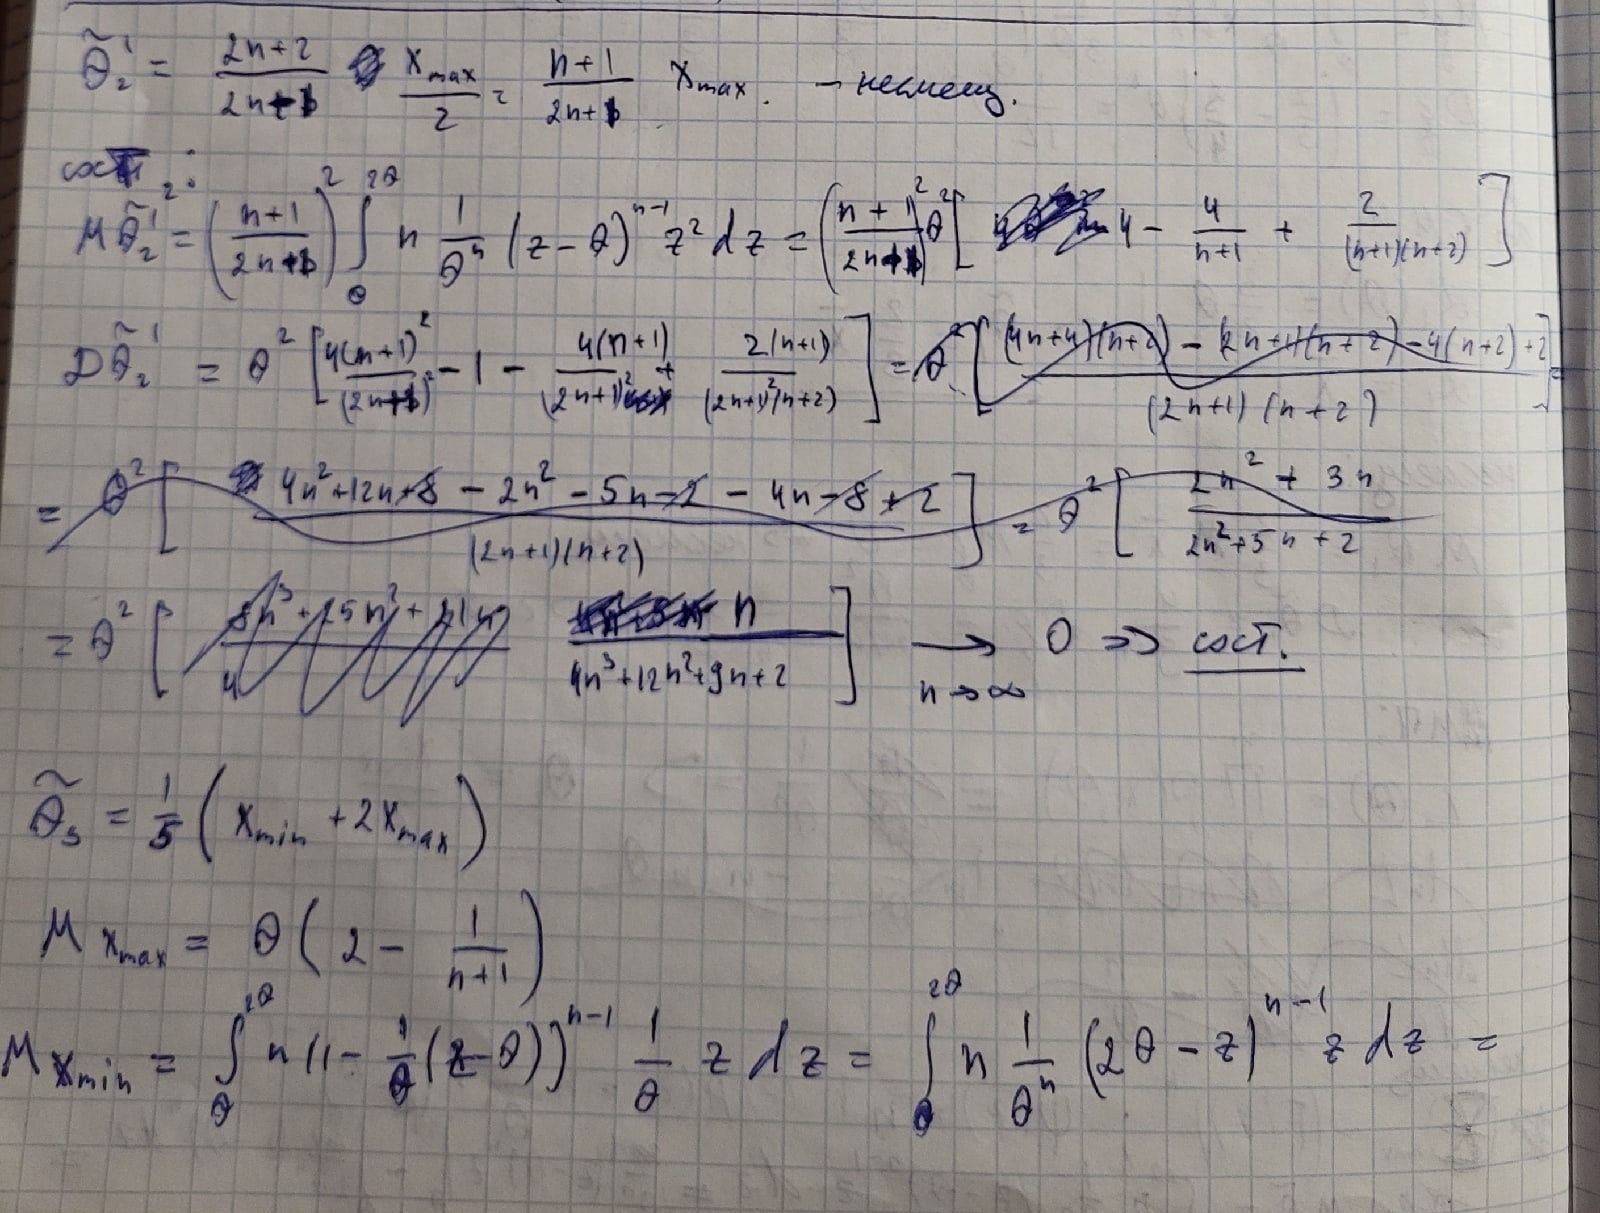 θ̃₂¹ = (2n+2)/(2n+1) · x_max/2 = (n+1)/(2n+1) x_max. – несмещ.
сост:
M θ̃₂¹² = ((n+1)/(2n+1))² ∫_θ^{2θ} n 1/θⁿ (z−θ)^{n−1} z² dz = ((n+1)/(2n+1))² θ² [4 − 4/(n+1) + 2/((n+1)(n+2))]
D θ̃₂¹ = θ² [4(n+1)²/(2n+1)² − 1 − 4(n+1)/(2n+1)² + 2(n+1)/((2n+1)²(n+2))] = θ² [((4n+4)(n+2) − (2n+1)(n+2) − 4(n+2) + 2)/((2n+1)(n+2))] =
= θ² [(4n²+12n+8 − 2n² − 5n − 2 − 4n − 8 + 2)/((2n+1)(n+2))] = θ² [(2n² + 3n)/(2n²+5n+2)]
= θ² [n/(4n³+12n²+9n+2)] →_{n→∞} 0 ⇒ сост.
θ̃₃ = 1/5 (x_min + 2x_max)
M x_max = θ (2 − 1/(n+1))
M x_min = ∫_θ^{2θ} n (1 − 1/θ (z−θ))^{n−1} 1/θ z dz = ∫_θ^{2θ} n 1/θⁿ (2θ − z)^{n−1} z dz =